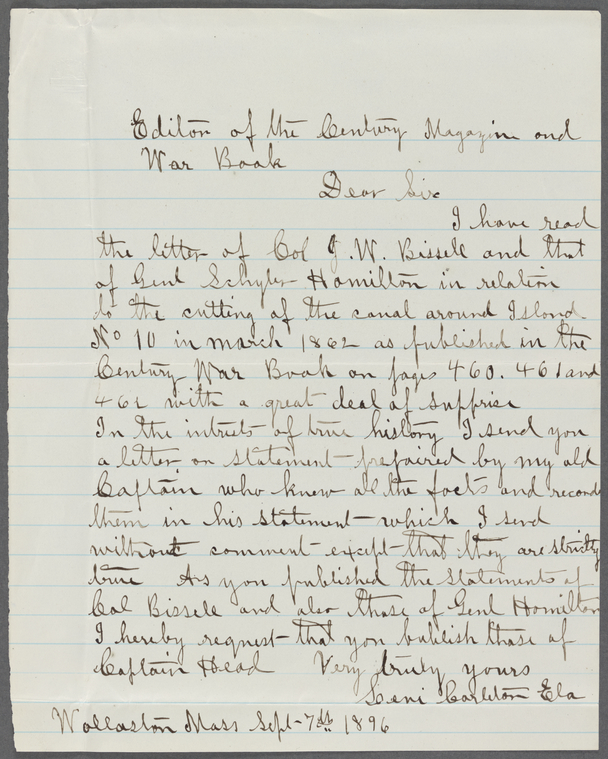 Editor of the Century Magazin and
War Book
Dear Sir
I have read
the letter of Col J. W. Bissell and that
of Genl Schyler Hamilton in relation
to the cutting of the canal around Island
No 10 in march 1862 as published in the
Century War Book on pages 460. 461 and
462 with a great deal of supprise
In the intrests of true history I send you
a letter or statement prepaired by my old
Captain who knew all the facts and records
them in his statement which I send
without comment except that they are strictly
true As you published the statements of
Col Bissell and also those of Genl Hamilton
I hereby request that you bublish those of
Captain Head Very truly yours
Levi Carleton Ela
Wollaston Mass Sept 7th 1896